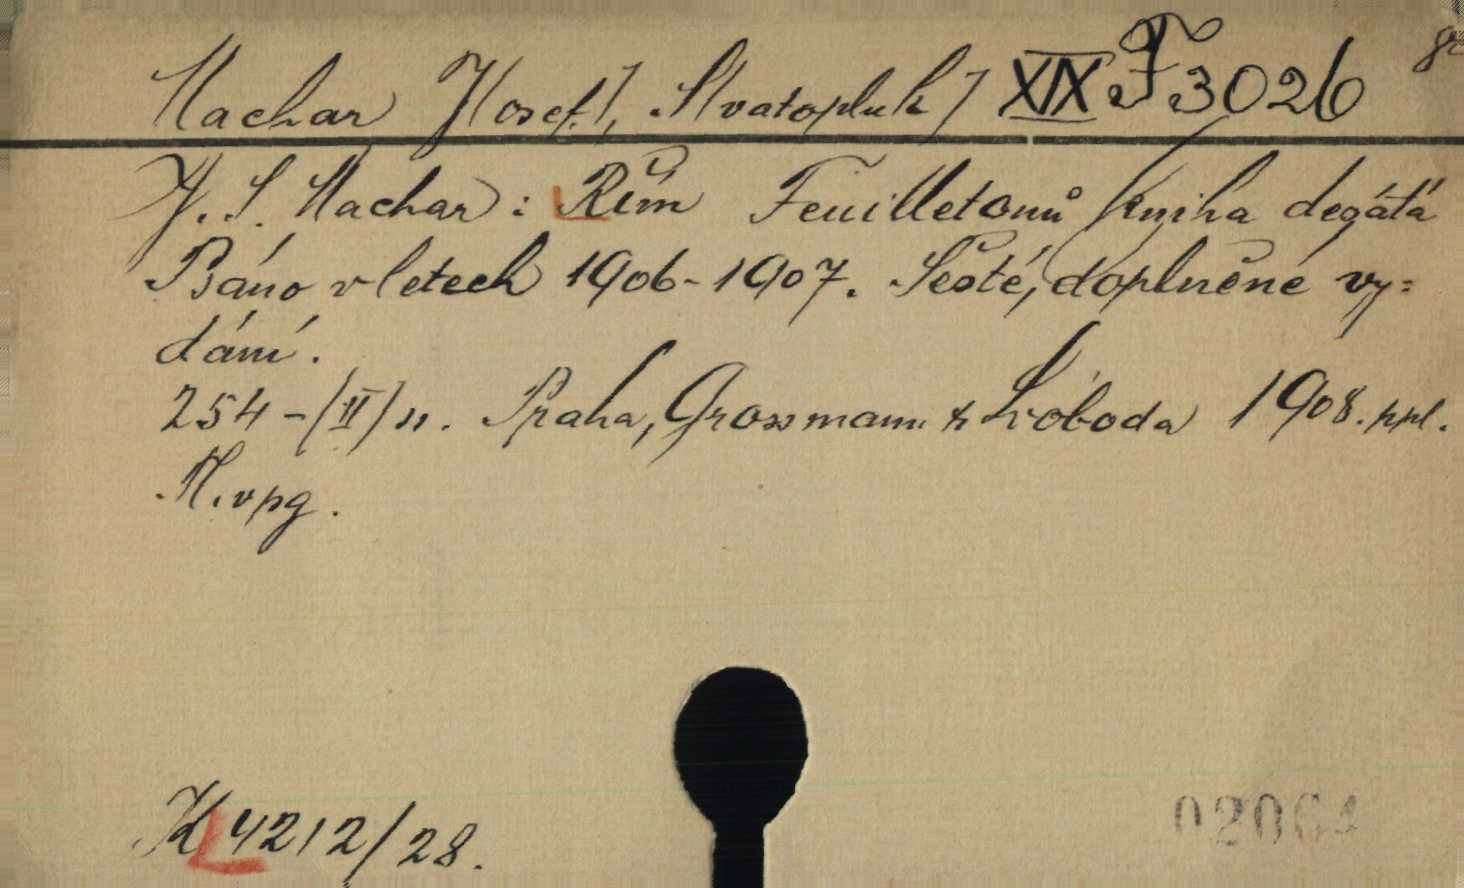 Machar J[osef], S[vatopluk] XIX F 3026 8°
J. S. Machar: Řím Feuilletonů kniha desátá
Psáno v letech 1906-1907. Šesté, doplněné vy=
dání.
254-(II) s. Praha, Grossman & Svoboda 1908. ppl.
M. vpg.
K 4212/28.
02064